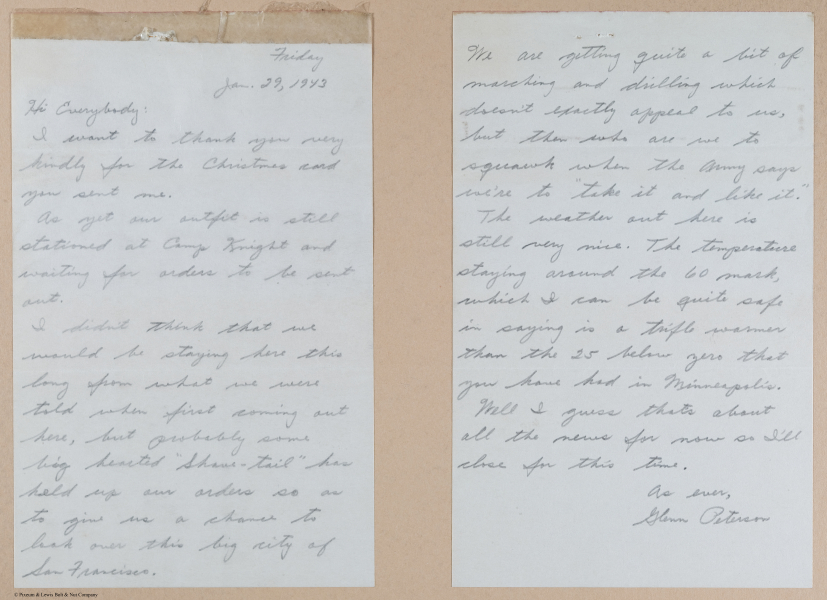 Friday
Jan. 29, 1943
Hi Everybody:
I want to thank you very
kindly for the Christmas card
you sent me.
As yet our outfit is still
stationed at Camp Knight and
waiting for orders to be sent
out.
I didn't think that we
would be staying here this
long from what we were
told when first coming out
here, but probably some
big hearted "Shave-tail" has
held up our orders so as
to give us a chance to
look over this big city of
San Francisco.
We are getting quite a bit of
marching and drilling which
doesn't exactly appeal to us,
but then who are we to
squawk when the Army says
we're to "take it and like it."
The weather out here is
still very nice. The temperature
staying around the 60 mark,
which I can be quite safe
in saying is a trifle warmer
than the 25 below zero that
you have had in Minneapolis.
Well I guess thats about
all the news for now so I'll
close for this time.
As ever,
Glenn Peterson
© Pioneers & Lewis Bolt & Nut Company